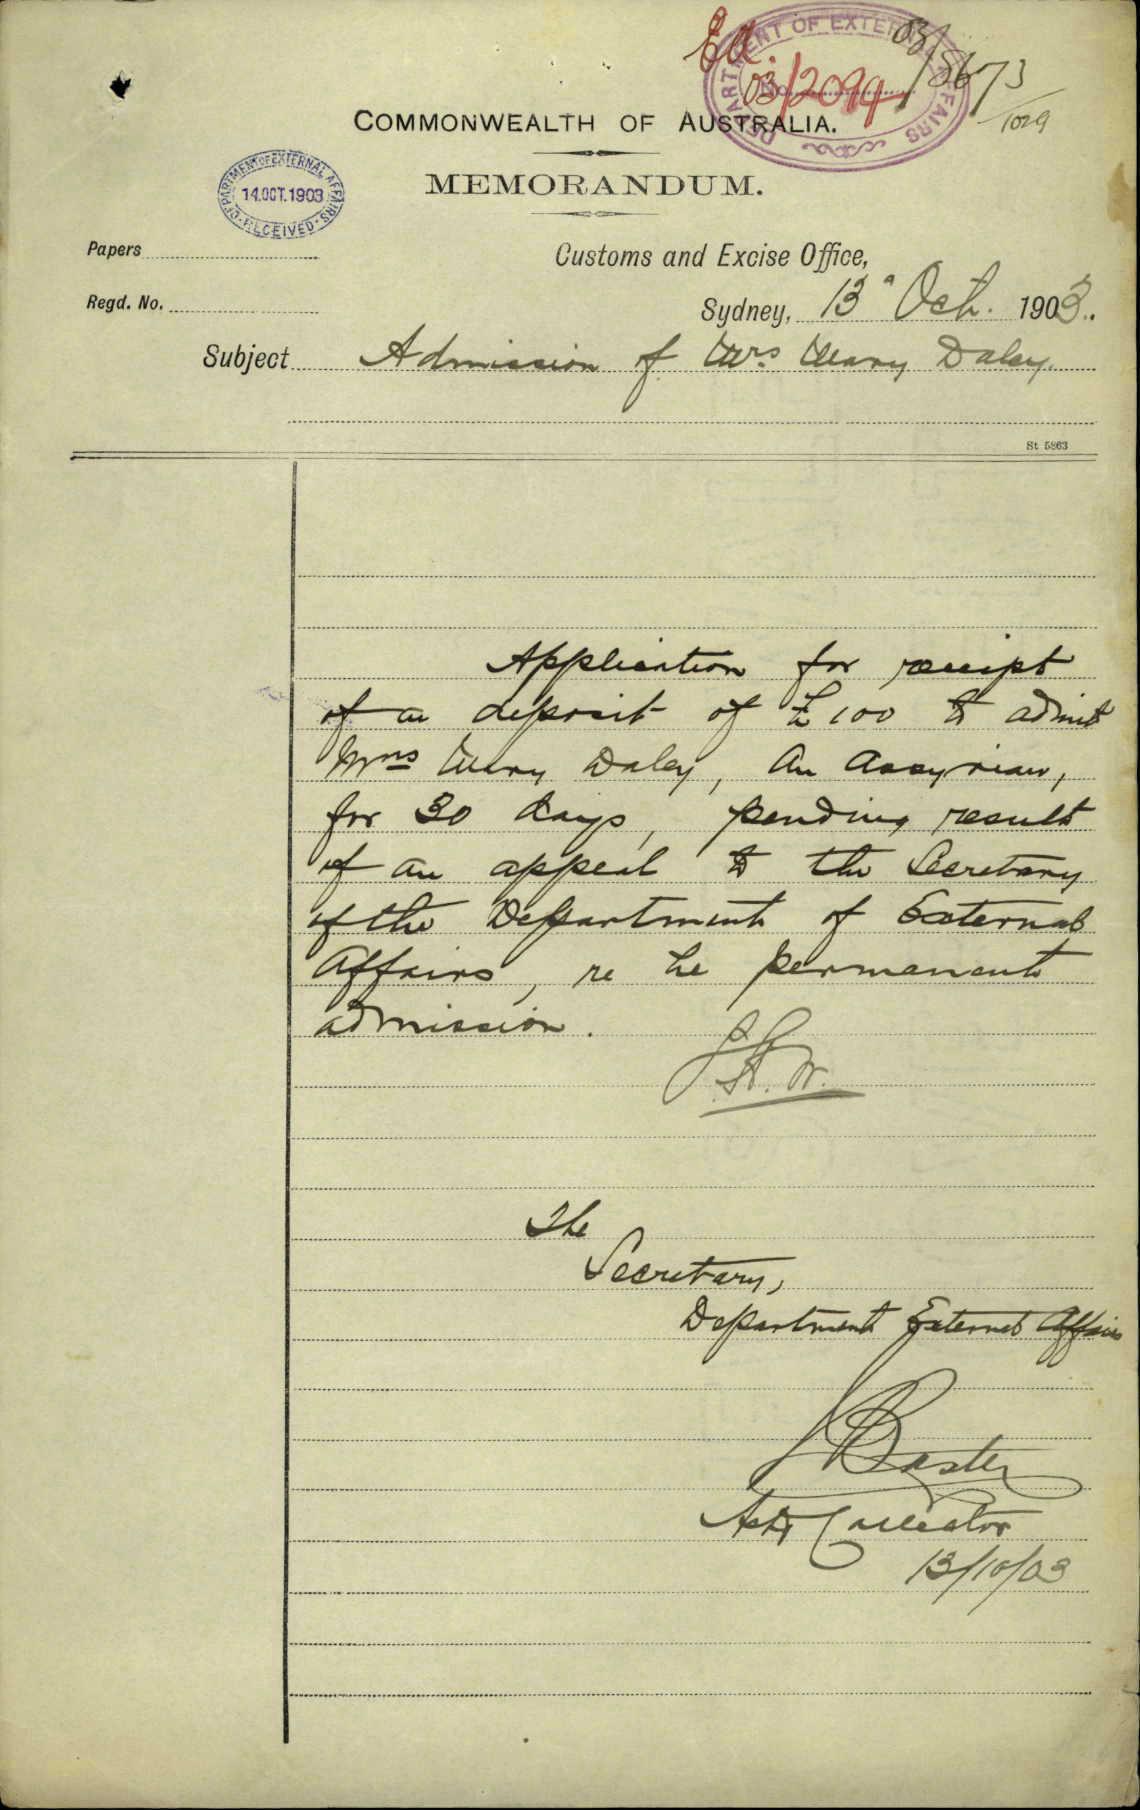 EA.
03/2094
03/8673
/1029
DEPARTMENT OF EXTERNAL AFFAIRS
No.
COMMONWEALTH OF AUSTRALIA.
MEMORANDUM.
DEPARTMENT OF EXTERNAL AFFAIRS
14.OCT.1903
RECEIVED
Papers
Customs and Excise Office,
Regd. No.
Sydney, 13 Oct. 1903.
Subject Admission of Mrs Mary Daley.
St 5863
Application for receipt
of a deposit of £100 to admit
Mrs Mary Daley, an Assyrian,
for 30 days, pending result
of an appeal to the Secretary
of the Department of External
Affairs, re he permanent
admission.
J.H.W.
The
Secretary,
Department External Affairs
Baxter
Actg Collector
13/10/03